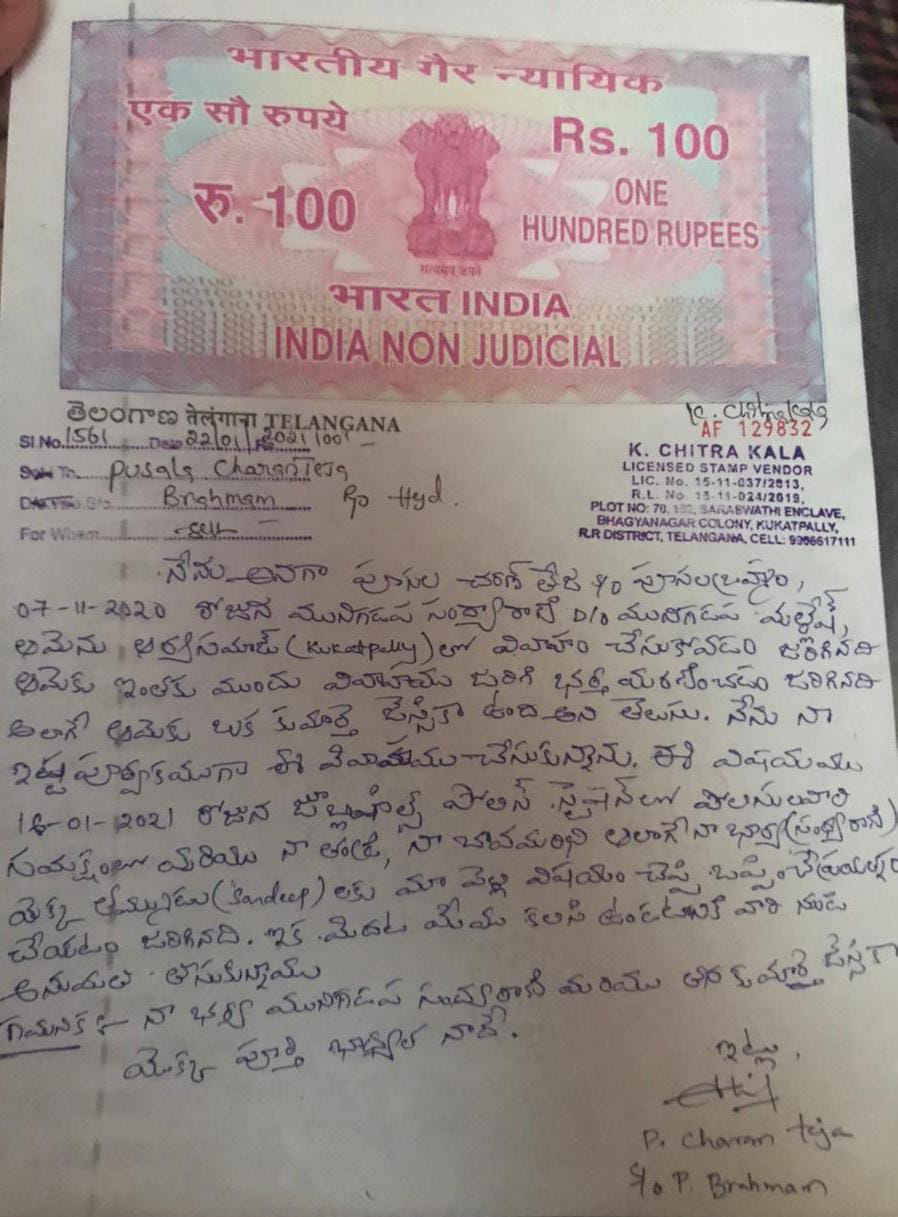 भारतीय गैर न्यायिक
एक सौ रुपये
Rs. 100
रु. 100
ONE
HUNDRED RUPEES
सत्यमेव जयते
भारत INDIA
INDIA NON JUDICIAL
తెలంగాణ तेलंगाना TELANGANA
K. Chitrakala
AF 129832
Sl.No. 1561 Date 22/01/2021 100/-
Sold To Pusala CharanTeja
S/o Brahmam R/o Hyd.
For Whom self
K. CHITRA KALA
LICENSED STAMP VENDOR
LIC. No. 15-11-037/2013,
R.L. No. 15-11-024/2019,
PLOT NO: 76, SARASWATHI ENCLAVE,
BHAGYANAGAR COLONY, KUKATPALLY,
R.R DISTRICT, TELANGANA, CELL: 9966617111
నేను అనగా పూసల చరణ్ తేజ S/o పూసల బ్రహ్మం,
07-11-2020 రోజున మునిగడప సంధ్యారాణి D/o మునిగడప మల్లేష్,
ఆమెను ఆర్యసమాజ్ (Kukatpally) లో వివాహం చేసుకోవడం జరిగినది
ఆమెకు ఇంతకు ముందు వివాహము జరిగి భర్త మరణించడం జరిగినది
అలాగే ఆమెకు ఒక కుమార్తె జెస్సికా ఉంది అని తెలుసు. నేను నా
ఇష్టపూర్వకముగా ఈ వివాహము చేసుకున్నాను. ఈ విషయము
-01-2021 రోజున జూబ్లీహిల్స్ పోలీస్ స్టేషన్ లో పోలీసులవారి
సమక్షంలో మరియు నా తండ్రి, నా బావమరిది అలాగే నా భార్య (సంధ్యారాణి)
యొక్క తమ్ముడు (Sandeep) లకు మా పెళ్లి విషయం చెప్పి
చేయటం జరిగినది. ఇక మీదట మేము కలిసి ఉండటానికి వారి నుండి
అనుమతి తీసుకున్నాము
గమనిక :- నా భార్య మునిగడప సంధ్యారాణి మరియు తన కుమార్తె జెస్సికా
యొక్క పూర్తి భాద్యత నాదే.
ఇట్లు,
P. Charan teja
S/o P. Brahmam